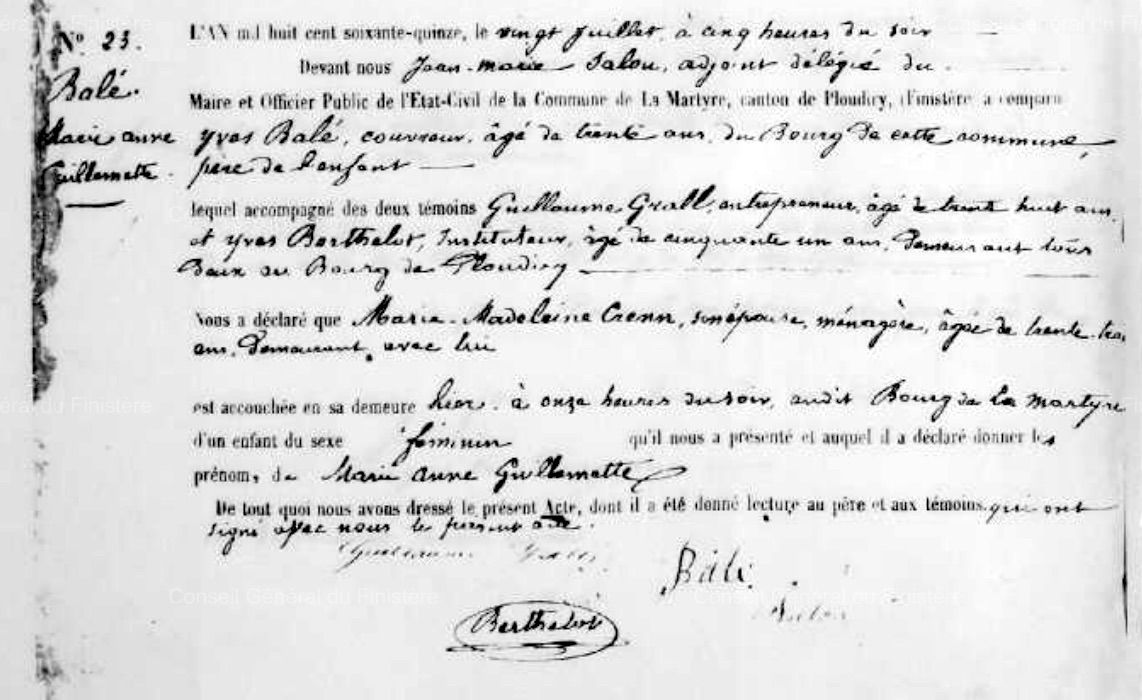 N° 23.
Balé.
Marie anne
Guillemette.
L'AN mil huit cent soixante-quinze, le vingt juillet, à cinq heures du soir
Devant nous Jean-marie Salou, adjoint délégué du
Maire et Officier Public de l'Etat-Civil de la Commune de La Martyre, canton de Ploudiry, (Finistère a comparu
yves Balé, couvreur, âgé de trente ans, du Bourg de cette commune,
père de l'enfant
lequel accompagné des deux témoins Guillaume Grall, entrepreneur, âgé de trente huit ans,
et yves Berthelot, Instituteur, âgé de cinquante un ans, Demeurant tous
Deux au Bourg de Ploudiry
Nous a déclaré que Marie-Madeleine Crenn, son épouse, ménagère, âgée de trente-trois
ans, Demeurant avec lui
est accouchée en sa demeure hier, à onze heures du soir, audit Bourg de La Martyre
d'un enfant du sexe féminin qu'il nous a présenté et auquel il a déclaré donner les
prénoms de Marie anne Guillemette
De tout quoi nous avons dressé le présent Acte, dont il a été donné lecture au père et aux témoins qui ont
signé avec nous le présent acte.
Guillaume Grall
Balé
Salou
Berthelot
Conseil Général du Finistère
Conseil Général du Finistère